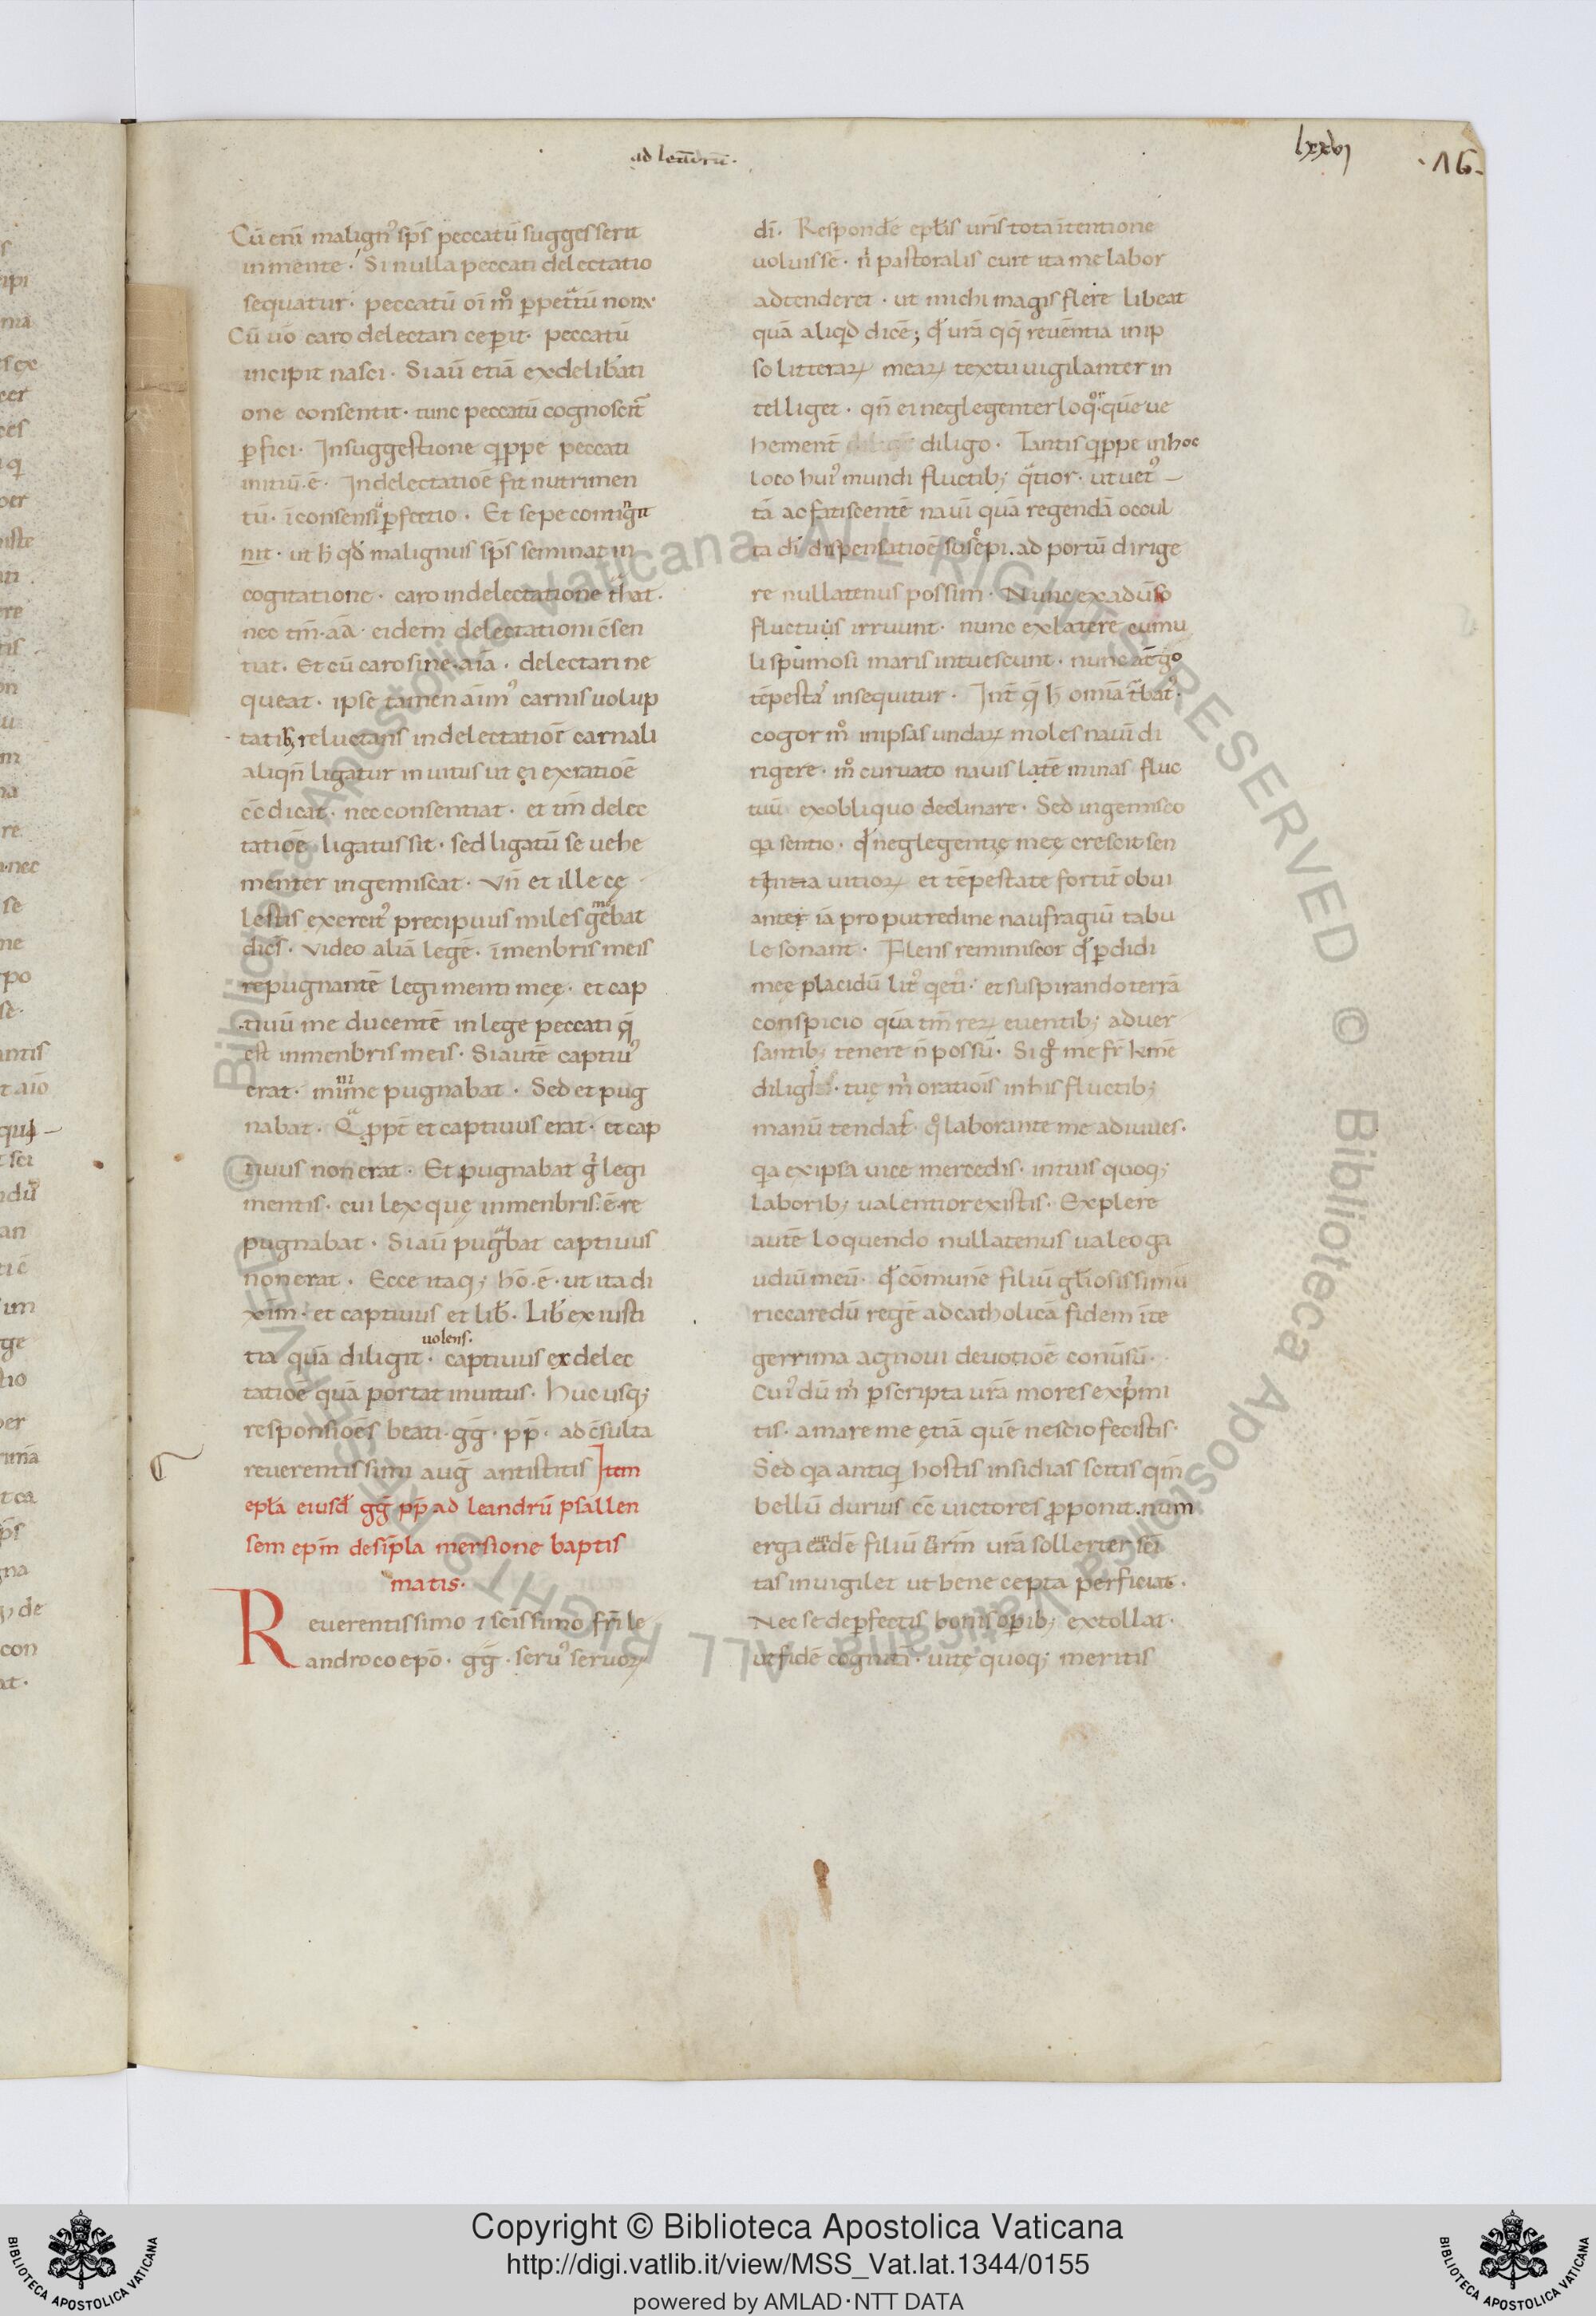 ad leādrū.
lxxvj
.16.
Cū enī malignꝰ sp̄s peccatū suggesserit
in mente. Si nulla peccati delectatio
sequatur. peccatū oī mº ꝑpetͣtū non.
Cū uō caro delectari ceꝑit. peccatū
incipit nasci. Si aū etiā ex delib̄ati
one consentit. tunc peccatū cognoscit᷑
ꝑfici. In suggestione qͥppe peccati
initiū .ē. In delectatiōe fit nutrimen
tū. ī consensu ꝑfectio. Et sepe contīgit
nit. ut h̄ qd̄ malignus sp̄s seminat in
cogitatione. caro in delectatione t̄hat.
nec tm̄. aīa. eidem delectationi c̄sen
tiat. Et cū caro sine. aīa. delectari ne
queat. ipse tamen aīmꝰ carnis uolup
tatibꝫ reluctans in delectatiōe carnali
aliqn̄ ligatur inuitus ut ei ex ratiōe
c̄c̄dicat. nec consentiat. et tm̄ delec
tatiōe ligatus sit. sed ligatū se uehe
menter ingemiscat. Vn̄ et ille cę
lestis exercitꝰ precipuus miles gemebat
dicēs. Video aliā legē. ī menbris meis
repugnantē legi menti meę. et cap
tiuū me ducentē in lege peccati q̄
est in menbris meis. Si autē captiuꝰ
erat. minime pugnabat. Sed et pug
nabat. Qͣ ꝓpt̄ et captiuus erat. et cap
tiuus non erat. Et pugnabat gͥ legi
mentis. cui lex quę in menbris .ē. re
pugnabat. Si aū pugͣbat captiuus
non erat. Ecce itaqꝫ hō .ē. ut ita di
xim̄. et captiuus et lib̄. Lib̄ ex iusti
uolens.
tia quā diligit. captiuus ex delec
tatiōe quā portat inuitus. Huc usqꝫ
responsiōes beati .gḡ. pp̄. ad c̄sulta
reuerentissimi auḡ antistitis Item
epl̄a eiusd̄ gḡ pp̄ ad leandrū psallen
sem ep̄m de sīpla mersione baptis
matis.
Reuerentissimo ⁊ sc̄issimo fr̄i le
andro coepō. gḡ. seruꝰ seruoꝝ
dī. Respondē epl̄is ur̄is tota ītentione
uoluissē. n̄ pastoralis cure ita me labor
adtenderet. ut michi magis flere libeat
quā aliqͥd dicē; qd̄ ur̄a qq̄ reuēntia in ip
so litteraꝝ meaꝝ textu uigilanter in
telliget. qn̄ ei neglegenter loqͦr. quē ue
hement̄ diligo. Tantis qͥppe in hoc
loco huiꝰ mundi fluctibꝫ qͣtior. ut uetꝰ
tā ac fatiscentē nauī quā regendā occul
ta dī dispensatiōe suscepi. ad portū dirige
re nullatenus possim. Nunc ex aduūso
fluctuus irruunt. nunc ex latere cumu
li spumosi maris intuescunt. nunc at̄gͦ
tēpestaꝰ insequitur. Int̄ q̄ h̄ omīa t̄batꝰ.
cogor mº in ipsas undaꝝ moles nauī di
rigere. mº curuato nauis latē minas fluc
tuū ex obliquo declinare. Sed ingemisco
qͣ sentio. qd̄ neglegentię meę crescit sen
tintia uitioꝝ et tēpestate fortit̄ obui
anter iā pro putredine naufragiū tabu
le sonant. Flens reminiscor qd̄ ꝑdidi
meę placidū litꝰ qͥeti. et suspirando terrā
conspicio quā tm̄ reꝝ euentibꝫ aduer
santibꝫ tenere n̄ possū. Si gͦ me fr̄ kmē
diligis. tuę m̄ oratiōis in his fluctibꝫ
manū tendat. qͦ laborante me adiuues.
qͣ ex ipsa uice mercedis. in tuis quoqꝫ
laboribꝫ ualentior existis. Explere
autē loquendo nullatenus ualeo ga
udiū meū. qd̄ cōmunē filiū gl̄iosissimū
riccaredū regē ad catholicā fidem īte
gerrima agnoui deuotiōe conūsū.
Cuiꝰ dū m̄ ꝑ scripta ur̄a mores expͥmi
tis. amare me ętiā quē nescio fecistis.
Sed qͣ antiqͥ hostis insidias scitis qm̄
bellū durius cc̄ uictores ꝓponit. num
erga eūdē filiū ur̄m ur̄a sollerter sc̄i
tas inuigilet ut bene cepta perficiat.
Nec se de ꝑfectis bonis oꝑibꝫ extollat.
ut fidē cognitā. uitę quoqꝫ meritis
© Biblioteca Apostolica Vaticana ALL RIGHTS RESERVED © Biblioteca Apostolica Vaticana ALL RIGHTS RESERVED
Copyright © Biblioteca Apostolica Vaticana
http://digi.vatlib.it/view/MSS_Vat.lat.1344/0155
powered by AMLAD·NTT DATA
BIBLIOTECA APOSTOLICA VATICANA
BIBLIOTECA APOSTOLICA VATICANA